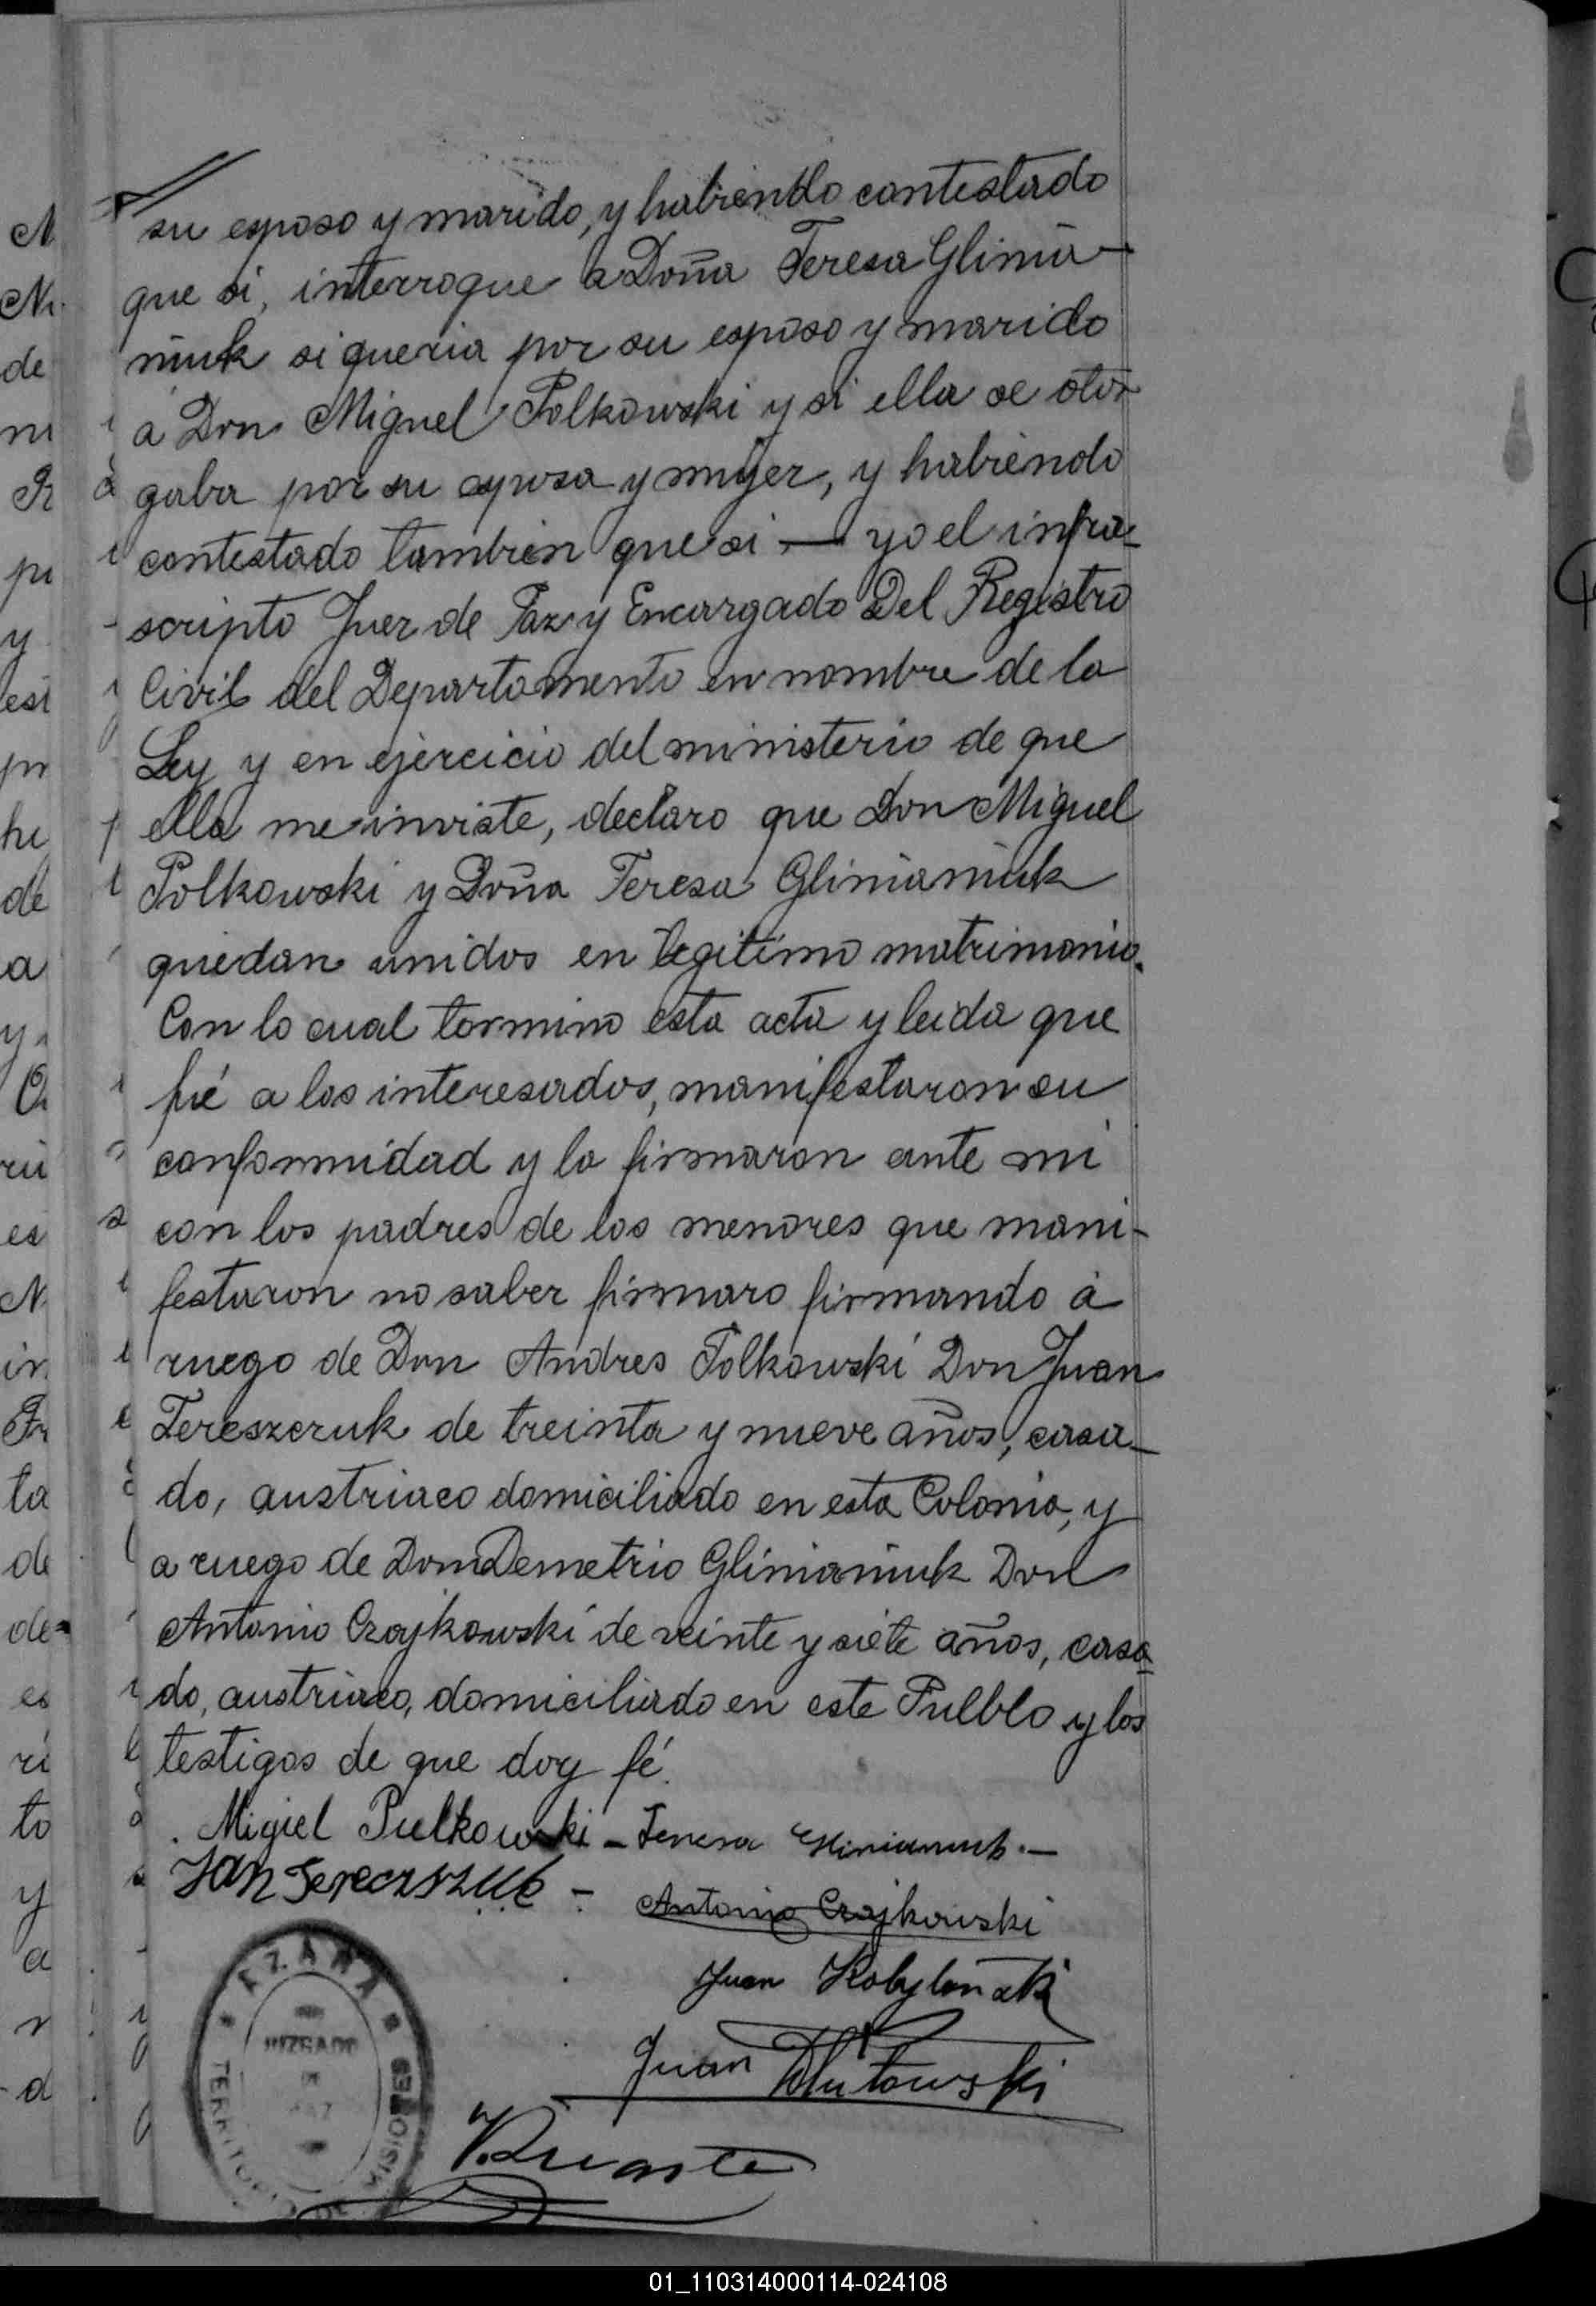 su esposo y marido, y habiendo contestado
que si, interrogue a Doña Teresa Glinia-
niuk si queria por su esposo y marido
á Don Miguel Polkowski y si ella se otor
gaba por su esposa y mujer, y habiendo
contestado tambien que si — yo el infra-
scripto Juez de Paz y Encargado Del Registro
Civil del Departamento en nombre de la
Ley y en ejercicio del ministerio de que
ella me inviste, declaro que Don Miguel
Polkowski y Doña Teresa Glinianiuk
quedan unidos en legitimo matrimonio.
Con lo cual termino esta acta y leida que
fué a los interesados, manifestaron su
conformidad y la firmaron ante mi
con los padres de los menores que mani-
festaron no saber firmaro firmando á
ruego de Don Andres Polkowski Don Juan
Tereszczuk de treinta y nueve años, casa-
do, austriaco domiciliado en esta Colonia, y
a ruego de Don Demetrio Glinianiuk Don
Antonio Czajkowski de veinte y siete años, casa
do, austriaco, domiciliado en este Pueblo y los
testigos de que doy fé.
Migiel Pulkowski – Teresa Glinianiuk.—
Jan Tereczszuk –
Antonio Czajkowski
Juan Kobylański
Juan Dlutowski
AZARA
JUZGADO
DE
PAZ
TERRITORIO DE MISIONES
01_110314000114-024108